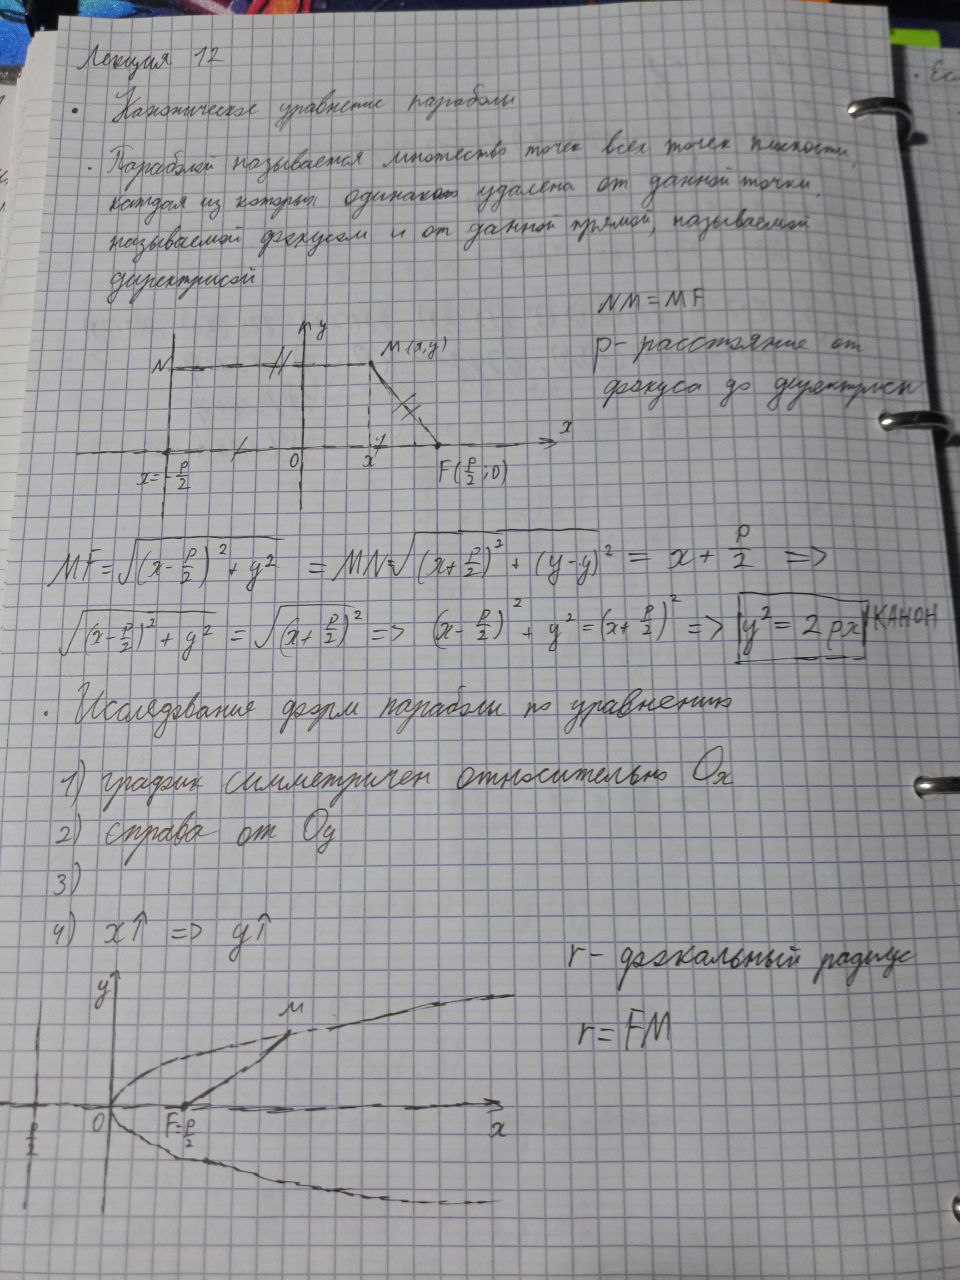 Лекция 12
· Каноническое уравнение параболы
· Параболой называется множество точек всех точек плоскости
каждая из которых одинаково удалена от данной точки
называемой фокусом и от данной прямой, называемой
директрисой
NM = MF
p - расстояние от
фокуса до директрисы
y
N
M(x,y)
x
0
x
x = -p/2
F(p/2; 0)
MF = √((x - p/2)² + y²) = MN = √((x + p/2)² + (y - y)²) = x + p/2 =>
√((x - p/2)² + y²) = √((x + p/2)²) => (x - p/2)² + y² = (x + p/2)² => y² = 2px КАНОН
· Исследования форм параболы по уравнению
1) график симметричен относительно Ox
2) справа от Oy
3)
4) x↑ => y↑
r - фокальный радиус
r = FM
y
M
0
F = p/2
x